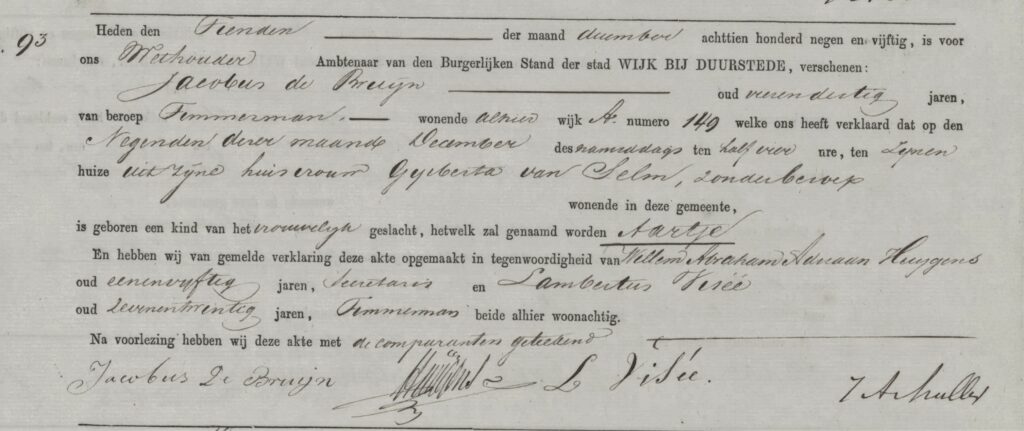 93
Heden den Tienden der maand december achttien honderd negen en vijftig, is voor
ons Wethouder Ambtenaar van den Burgerlijken Stand der stad WIJK BIJ DUURSTEDE, verschenen:
Jacobus de Bruijn oud vierendertig jaren,
van beroep Timmerman. wonende alhier wijk A. numero 149 welke ons heeft verklaard dat op den
Negenden dezer maand December des namiddags ten half vier ure, ten zijnen
huize uit zijne huisvrouw Gijsberta van Selm, zonder beroep
wonende in deze gemeente,
is geboren een kind van het vrouwelijk geslacht, hetwelk zal genaamd worden Aartje
En hebben wij van gemelde verklaring deze akte opgemaakt in tegenwoordigheid van Willem Abraham Adriaan Huijgens
oud eenenvijftig jaren, Secretaris en Lambertus Visée
oud Zevenentwintig jaren, Timmerman beide alhier woonachtig.
Na voorlezing hebben wij deze akte met de comparanten geteekend
Jacobus De Bruijn Huijgens L Visée.